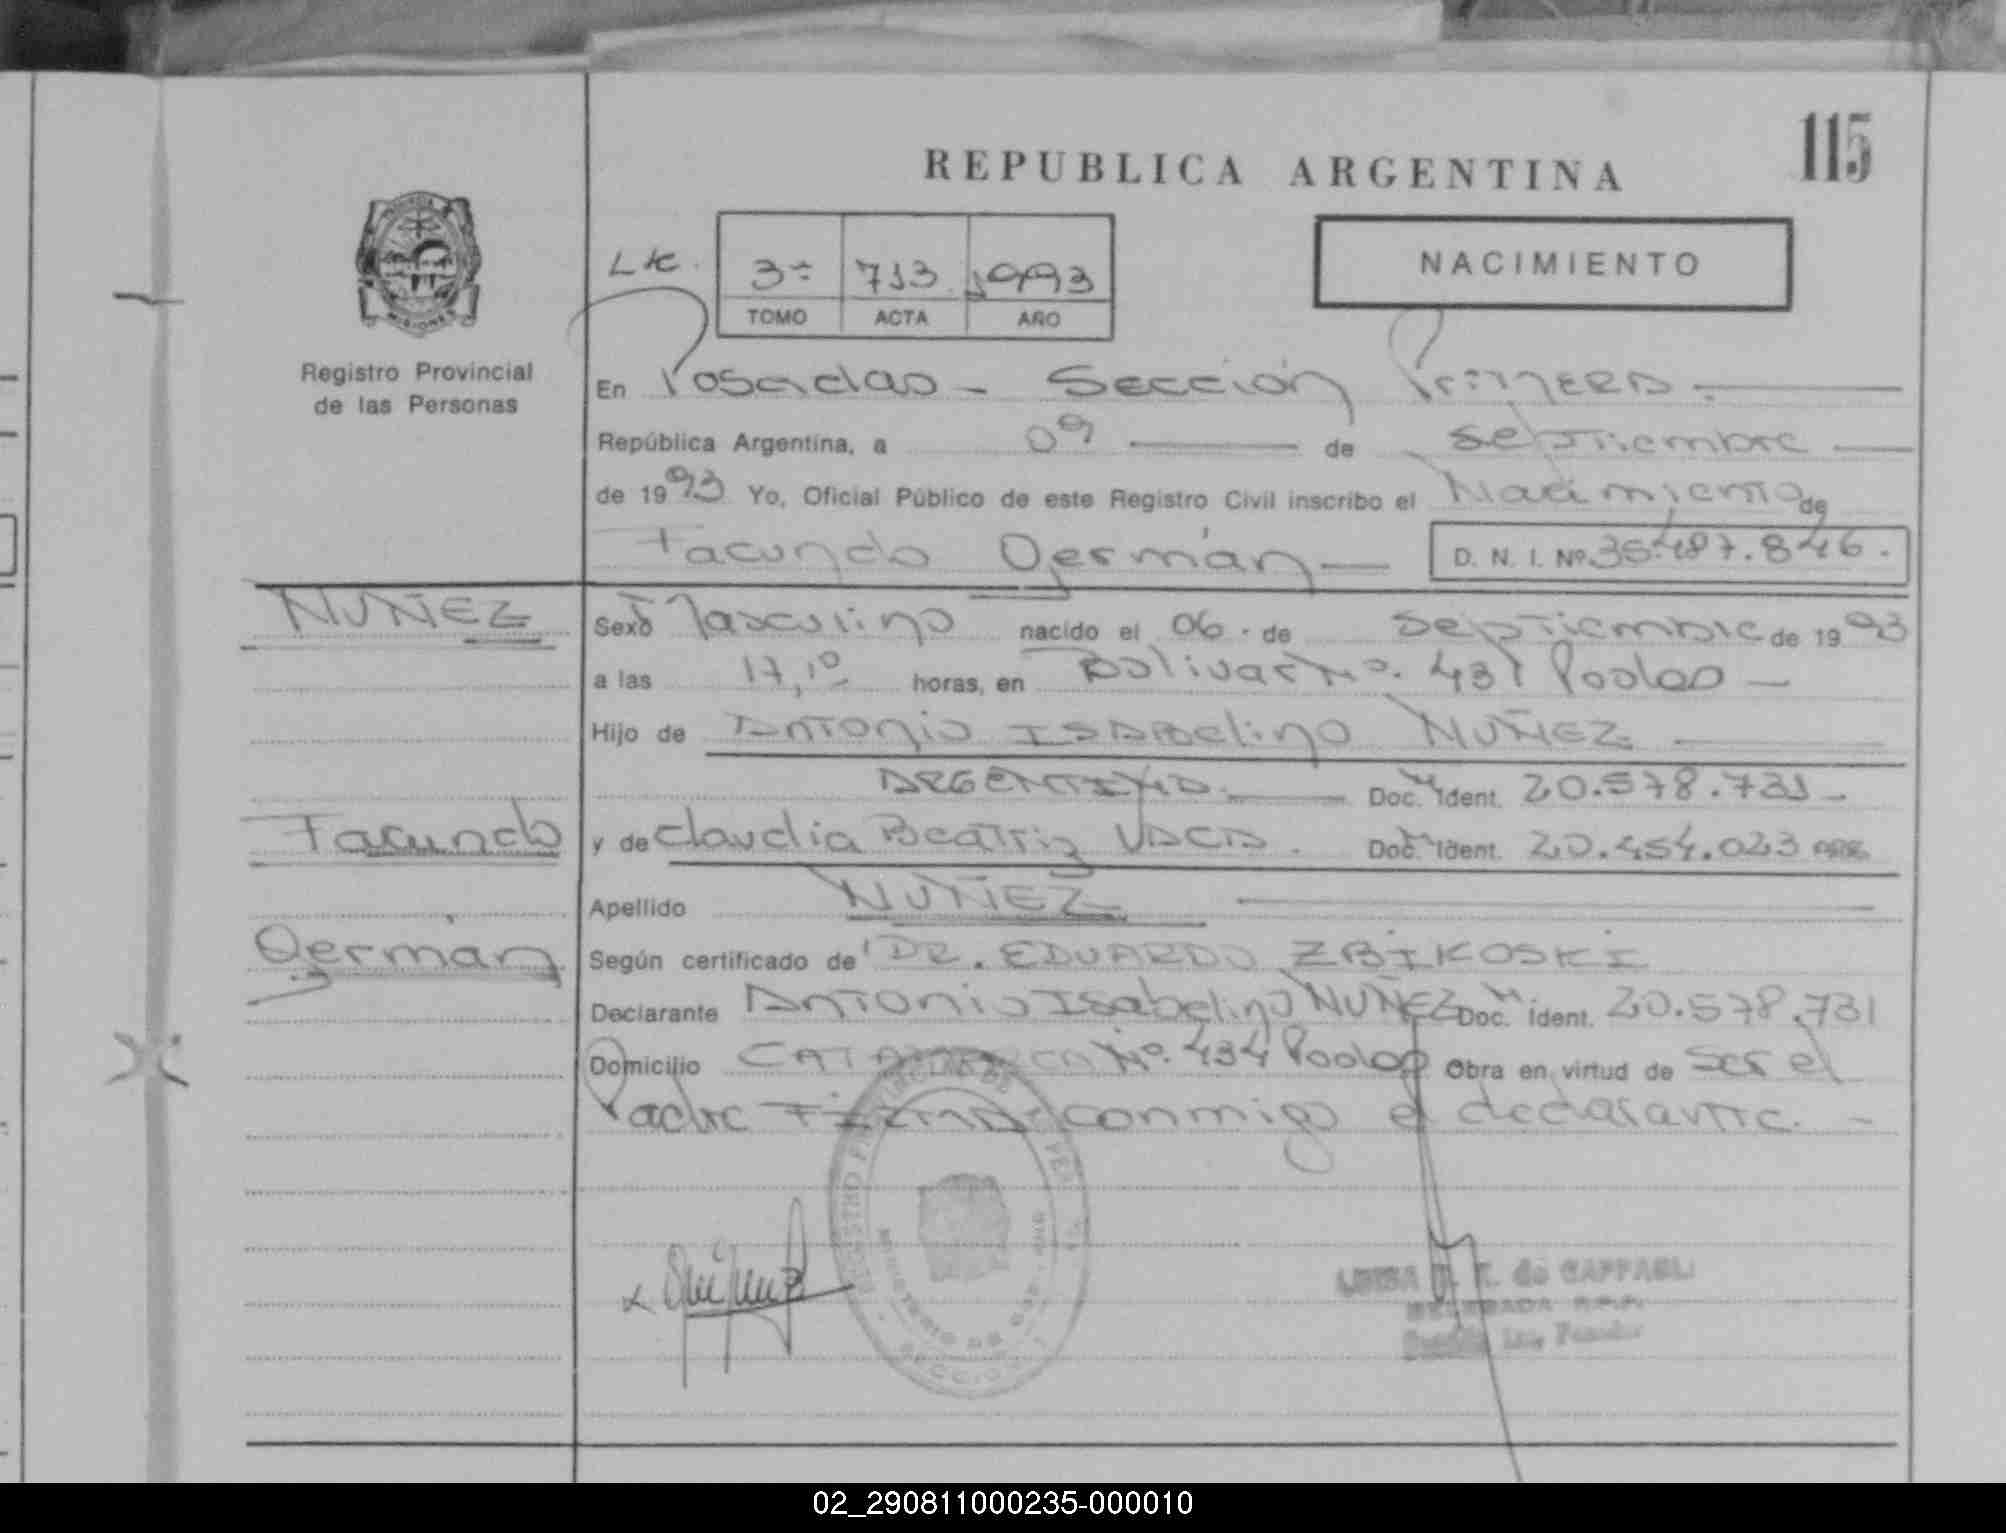 115
REPUBLICA ARGENTINA
NACIMIENTO
Lic. 3º 713 1993
TOMO ACTA AÑO
PROVINCIA
MISIONES
Registro Provincial
de las Personas
En Posadas - Sección Primera.
República Argentina, a 09 de Septiembre
de 1993 Yo, Oficial Público de este Registro Civil inscribo el Nacimiento de
Facundo Germán D. N. I. Nº 36.487.846.
NUÑEZ
Sexo Masculino nacido el 06 de Septiembre de 1993
a las 17,10 horas, en Bolivar Nº. 431 Psdas
Hijo de Antonio Isabelino NUÑEZ
ARGENTINO. Doc. M. Ident. 20.578.731
Facundo
y de Claudia Beatriz VACA. Doc. M. Ident. 20.454.023 ARG.
Apellido NUÑEZ
Germán
Según certificado de DR. EDUARDO ZBIKOSKI
Declarante Antonio Isabelino NUÑEZ Doc. M. Ident. 20.578.731
Domicilio CATAMARCA Nº. 434 Psdas Obra en virtud de ser el
Padre Firma conmigo el declarante.
REGISTRO PROVINCIAL DE
SECCION 1
LUISA de
DELEGADA R.P.P.
02_290811000235-000010